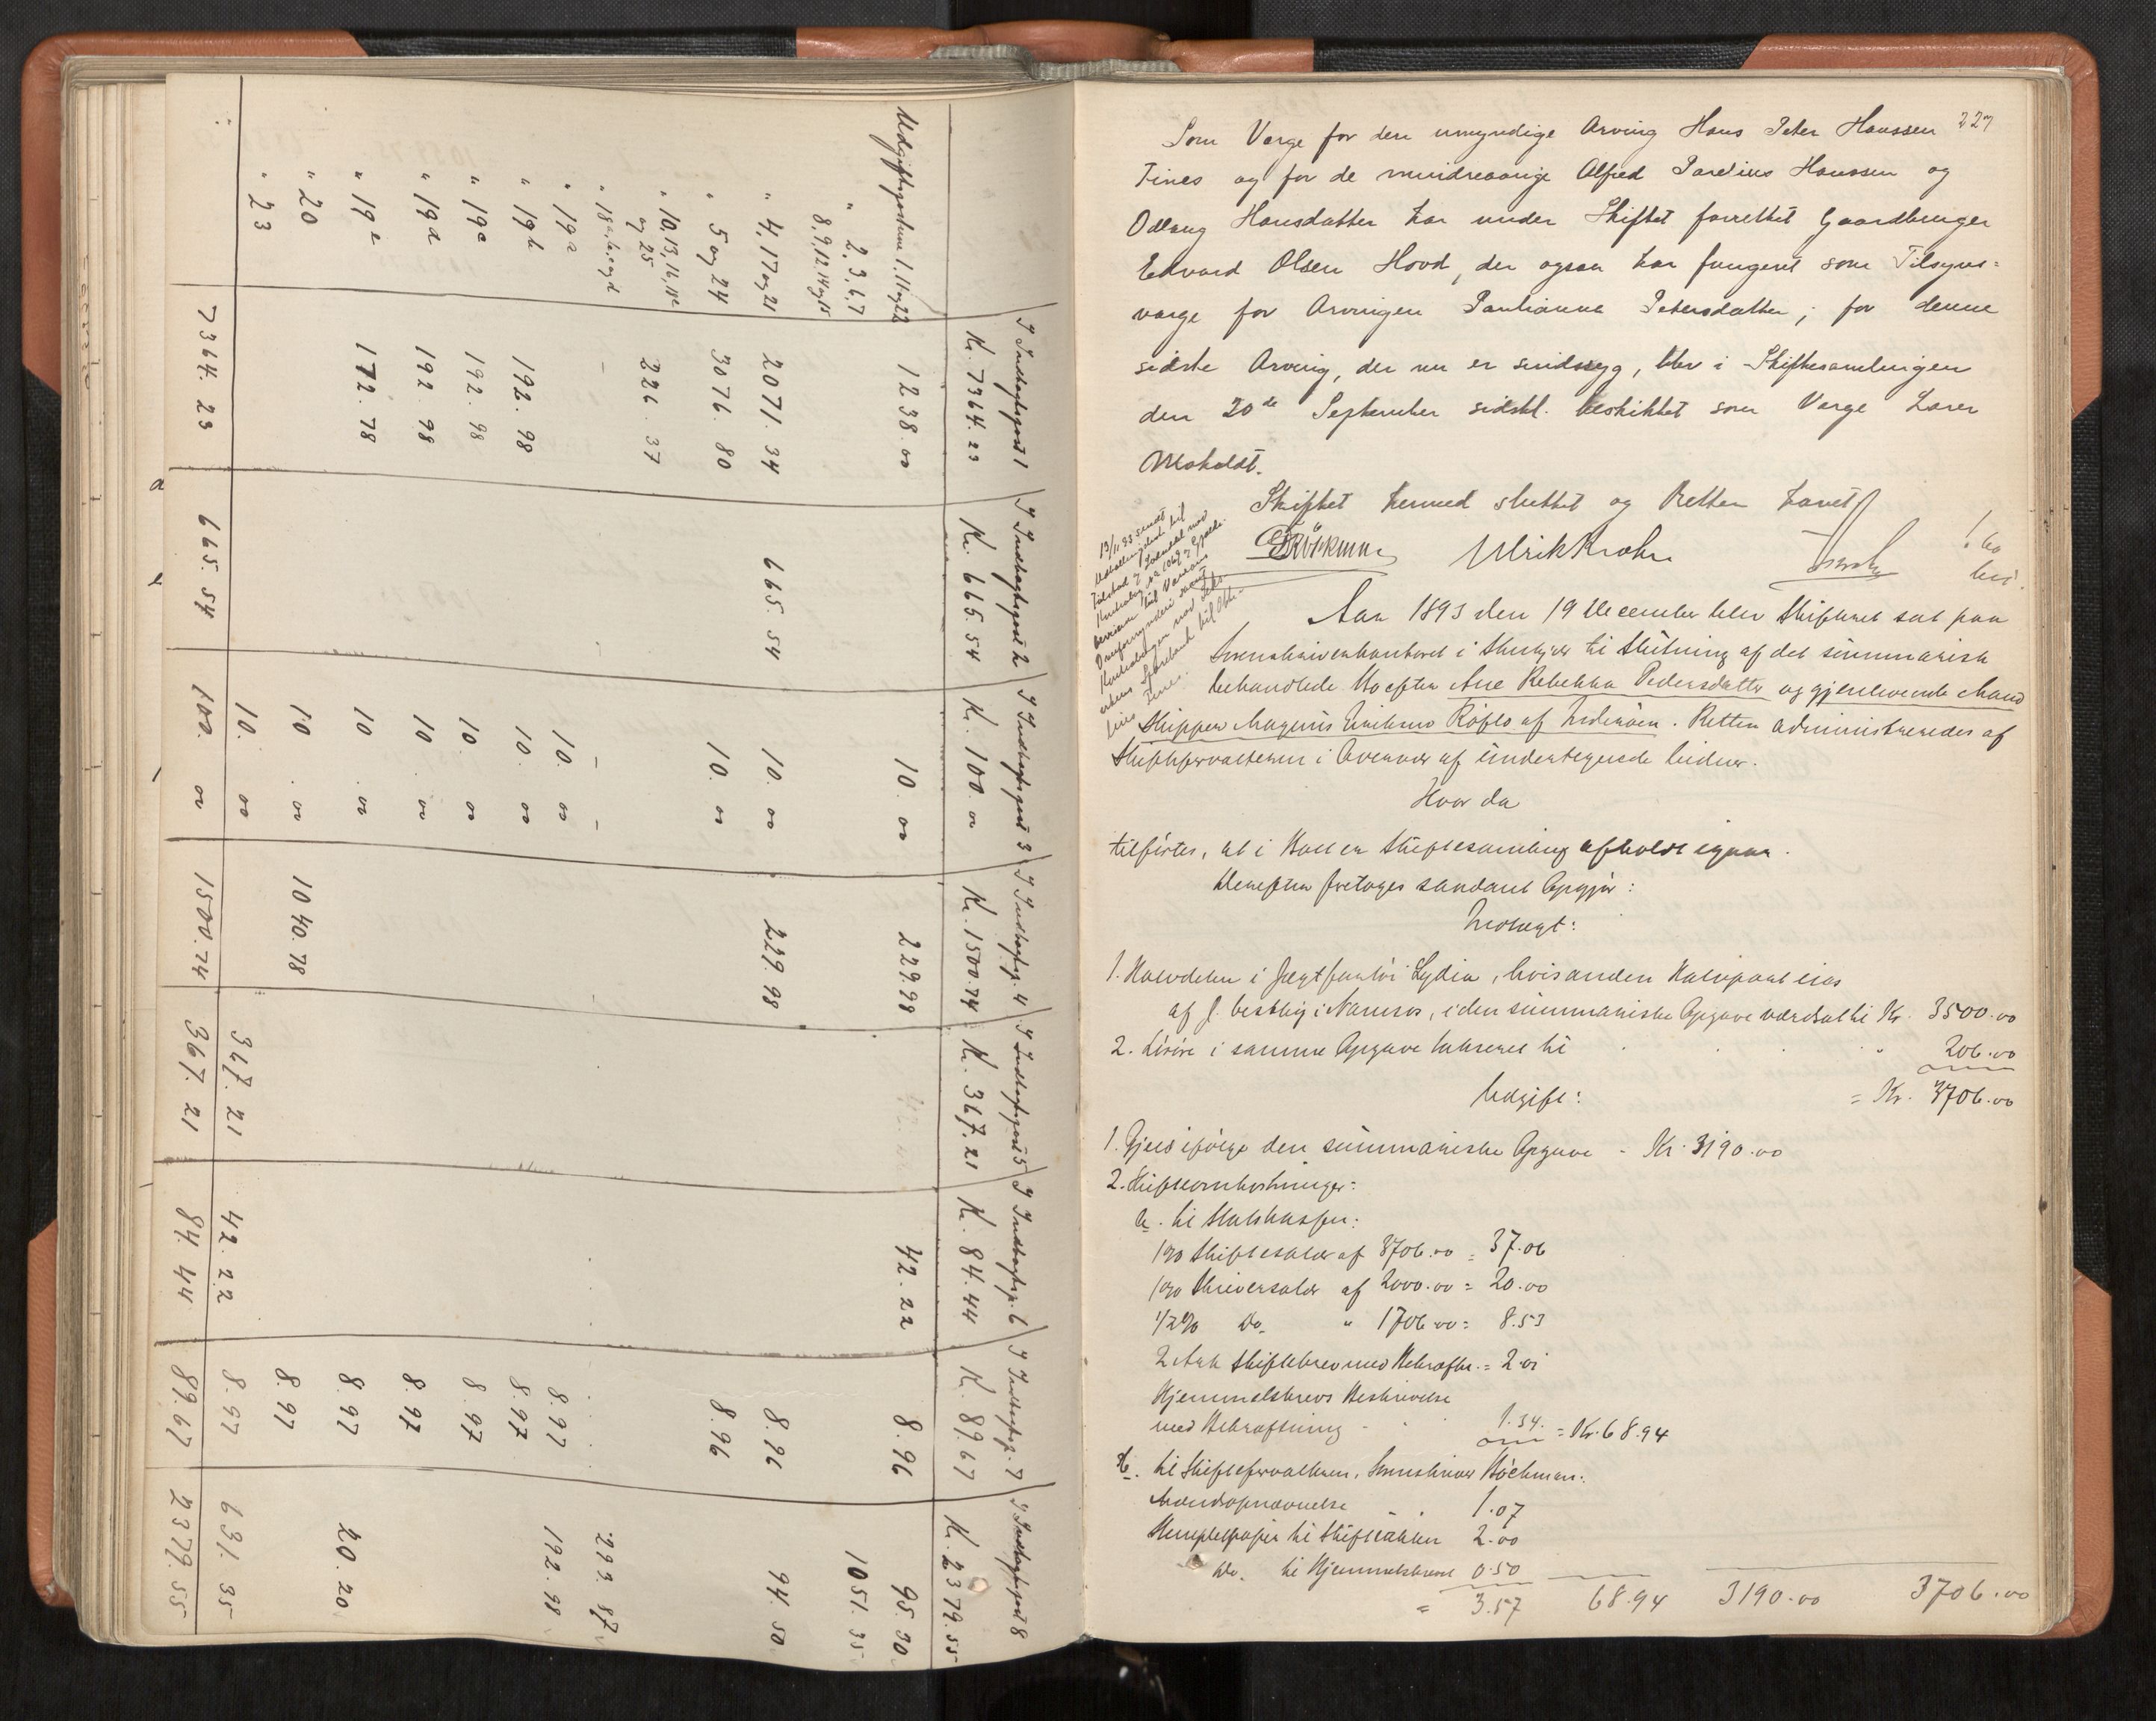 I Indtægtspost 1 I Indtægtspost 2 I Indtægtspost 3 I Indtægtsp. 4 I Indtægtspost 5 I Indtægtsp. 6 I Indtægtsp. 7 I Indtægtspost 8
Kr. 7364. 23 Kr. 665. 54 Kr. 100. 00 Kr. 1500. 74 Kr. 367. 21 Kr. 84. 44 Kr. 89. 67 Kr. 2379. 55
Udgiftspostene 1. 11 og 22 1238. 00 10. 00 229. 98 42. 22 8. 96 95. 30
" 2, 3, 6, 7
8, 9, 12, 14 og 15 1051. 35
" 4, 17 og 21 2071. 34 665. 54 10. 00 229. 98 8. 96 94. 50
" 5 og 24 3076. 80 10. 00 8. 96
" 10, 13, 16, 18e
og 25 226. 37
" 18a, b, c og d - - 293. 87
" 19a 10. 00 8. 97 192. 98
" 19b 192. 98 10. 00 8. 97
" 19c 192. 98 10. 00 8. 97
" 19d 192. 98 10. 00 8. 97
" 19e 172. 78 10. 00 8. 97 20. 20
" 20 10. 00 1040. 78 8. 97
" 23 10. 00 367. 21 42. 22 8. 97 631. 35
7364. 23 665. 54 100. 00 1500. 74 367. 21 84. 44 89. 67 2379. 55
227
Som Værge for den umyndige Arving Hans Peter Hanssen
Fines og for de mindreaarige Alfred Parelius Hanssen og
Odlaug Hansdatter har under Skiftet forrettet Gaardbruger
Edvard Olsen Hovd, der ogsaa har fungeret som Tilsyns-
værge for Arvingen Paulianna Petersdatter; for denne
sidste Arving, der nu er sindssyg, blev i Skiftesamlingen
den 20de September sidstl. beskikket som Værge Lærer
Moholdt.
Skiftet hermed sluttet og Retten hævet
Ulrik Krohn
Aar 1893 den 19 December blev Skifteret sat paa
Sorenskriverkontoret i Stenkjær til Slutning af det summarisk
behandlede Bo efter Ane Rebekka Pedersdatter og gjenlevende Mand
Skipper Magnus Eriksen Røflo af Inderøen. Retten administreredes af
Skifteforvalteren i Overvær af undertegnede Vidner.
Hvor da
tilførtes, at i Boet er Skiftesamling afholdt igaar.
Derefter foretoges saadant Opgjør:
Indtægt:
1. Halvdelen i Jægtfartøi Lydia, hvis anden Halvpart eies
af J. i Namsos, i den summariske Opgave værdsat til Kr. 3500.00
2. Løsøre i samme Opgave takseret til " 206.00
= Kr. 3706.00
Udgift:
1. Gjæld ifølge den summariske Opgave - Kr. 3190.00
2. Skifteomkostninger:
a. til Statskassen:
1% Skiftesalær af 3706.00 = 37.06
1% Skriversalær af 2000.00 = 20.00
1/2% Do. " 1706.00 = 8.53
2 Ark Skiftebrev med Bekræftn. = 2.01
Hjemmelsbrevs Beskrivelse
med Bekræftning - 1.34. = Kr. 68.94
b. til Skifteforvalteren, Sorenskriver Böckman:
Mændsopnævnelse 1.07
Stempletpapir til Skifteakten 2.00
Do. til Hjemmelsbrevet 0.50
= 3.57 68.94 3190.00 3706.00